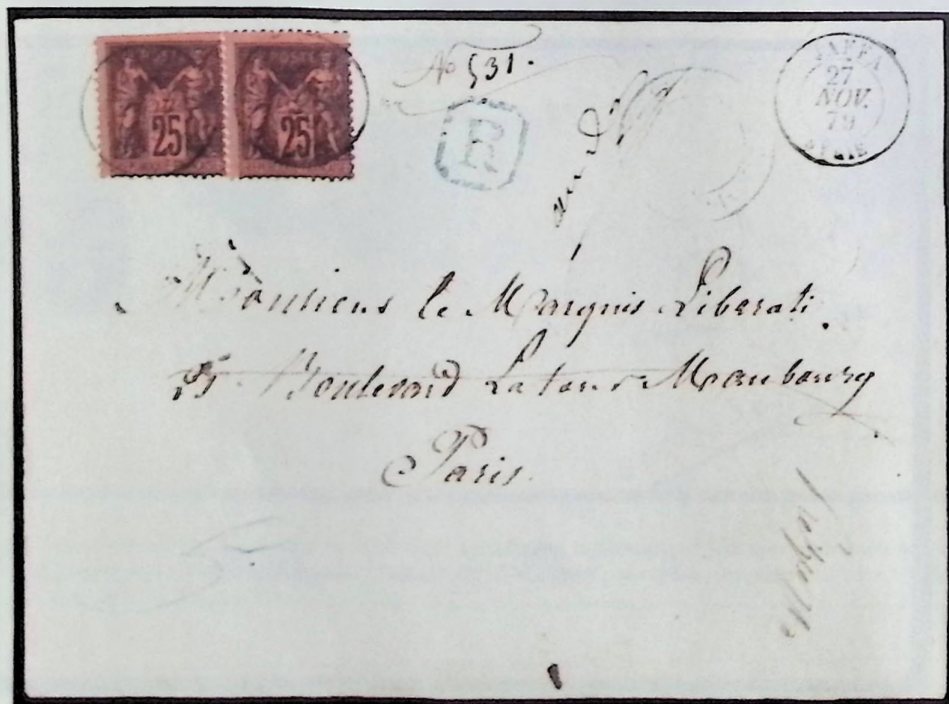 25 25
No 531.
R
JAFFA
27
NOV.
79
SYRIE
Monsieur le Marquis Liberati.
25 Boulevard Latour Maubourg
Paris